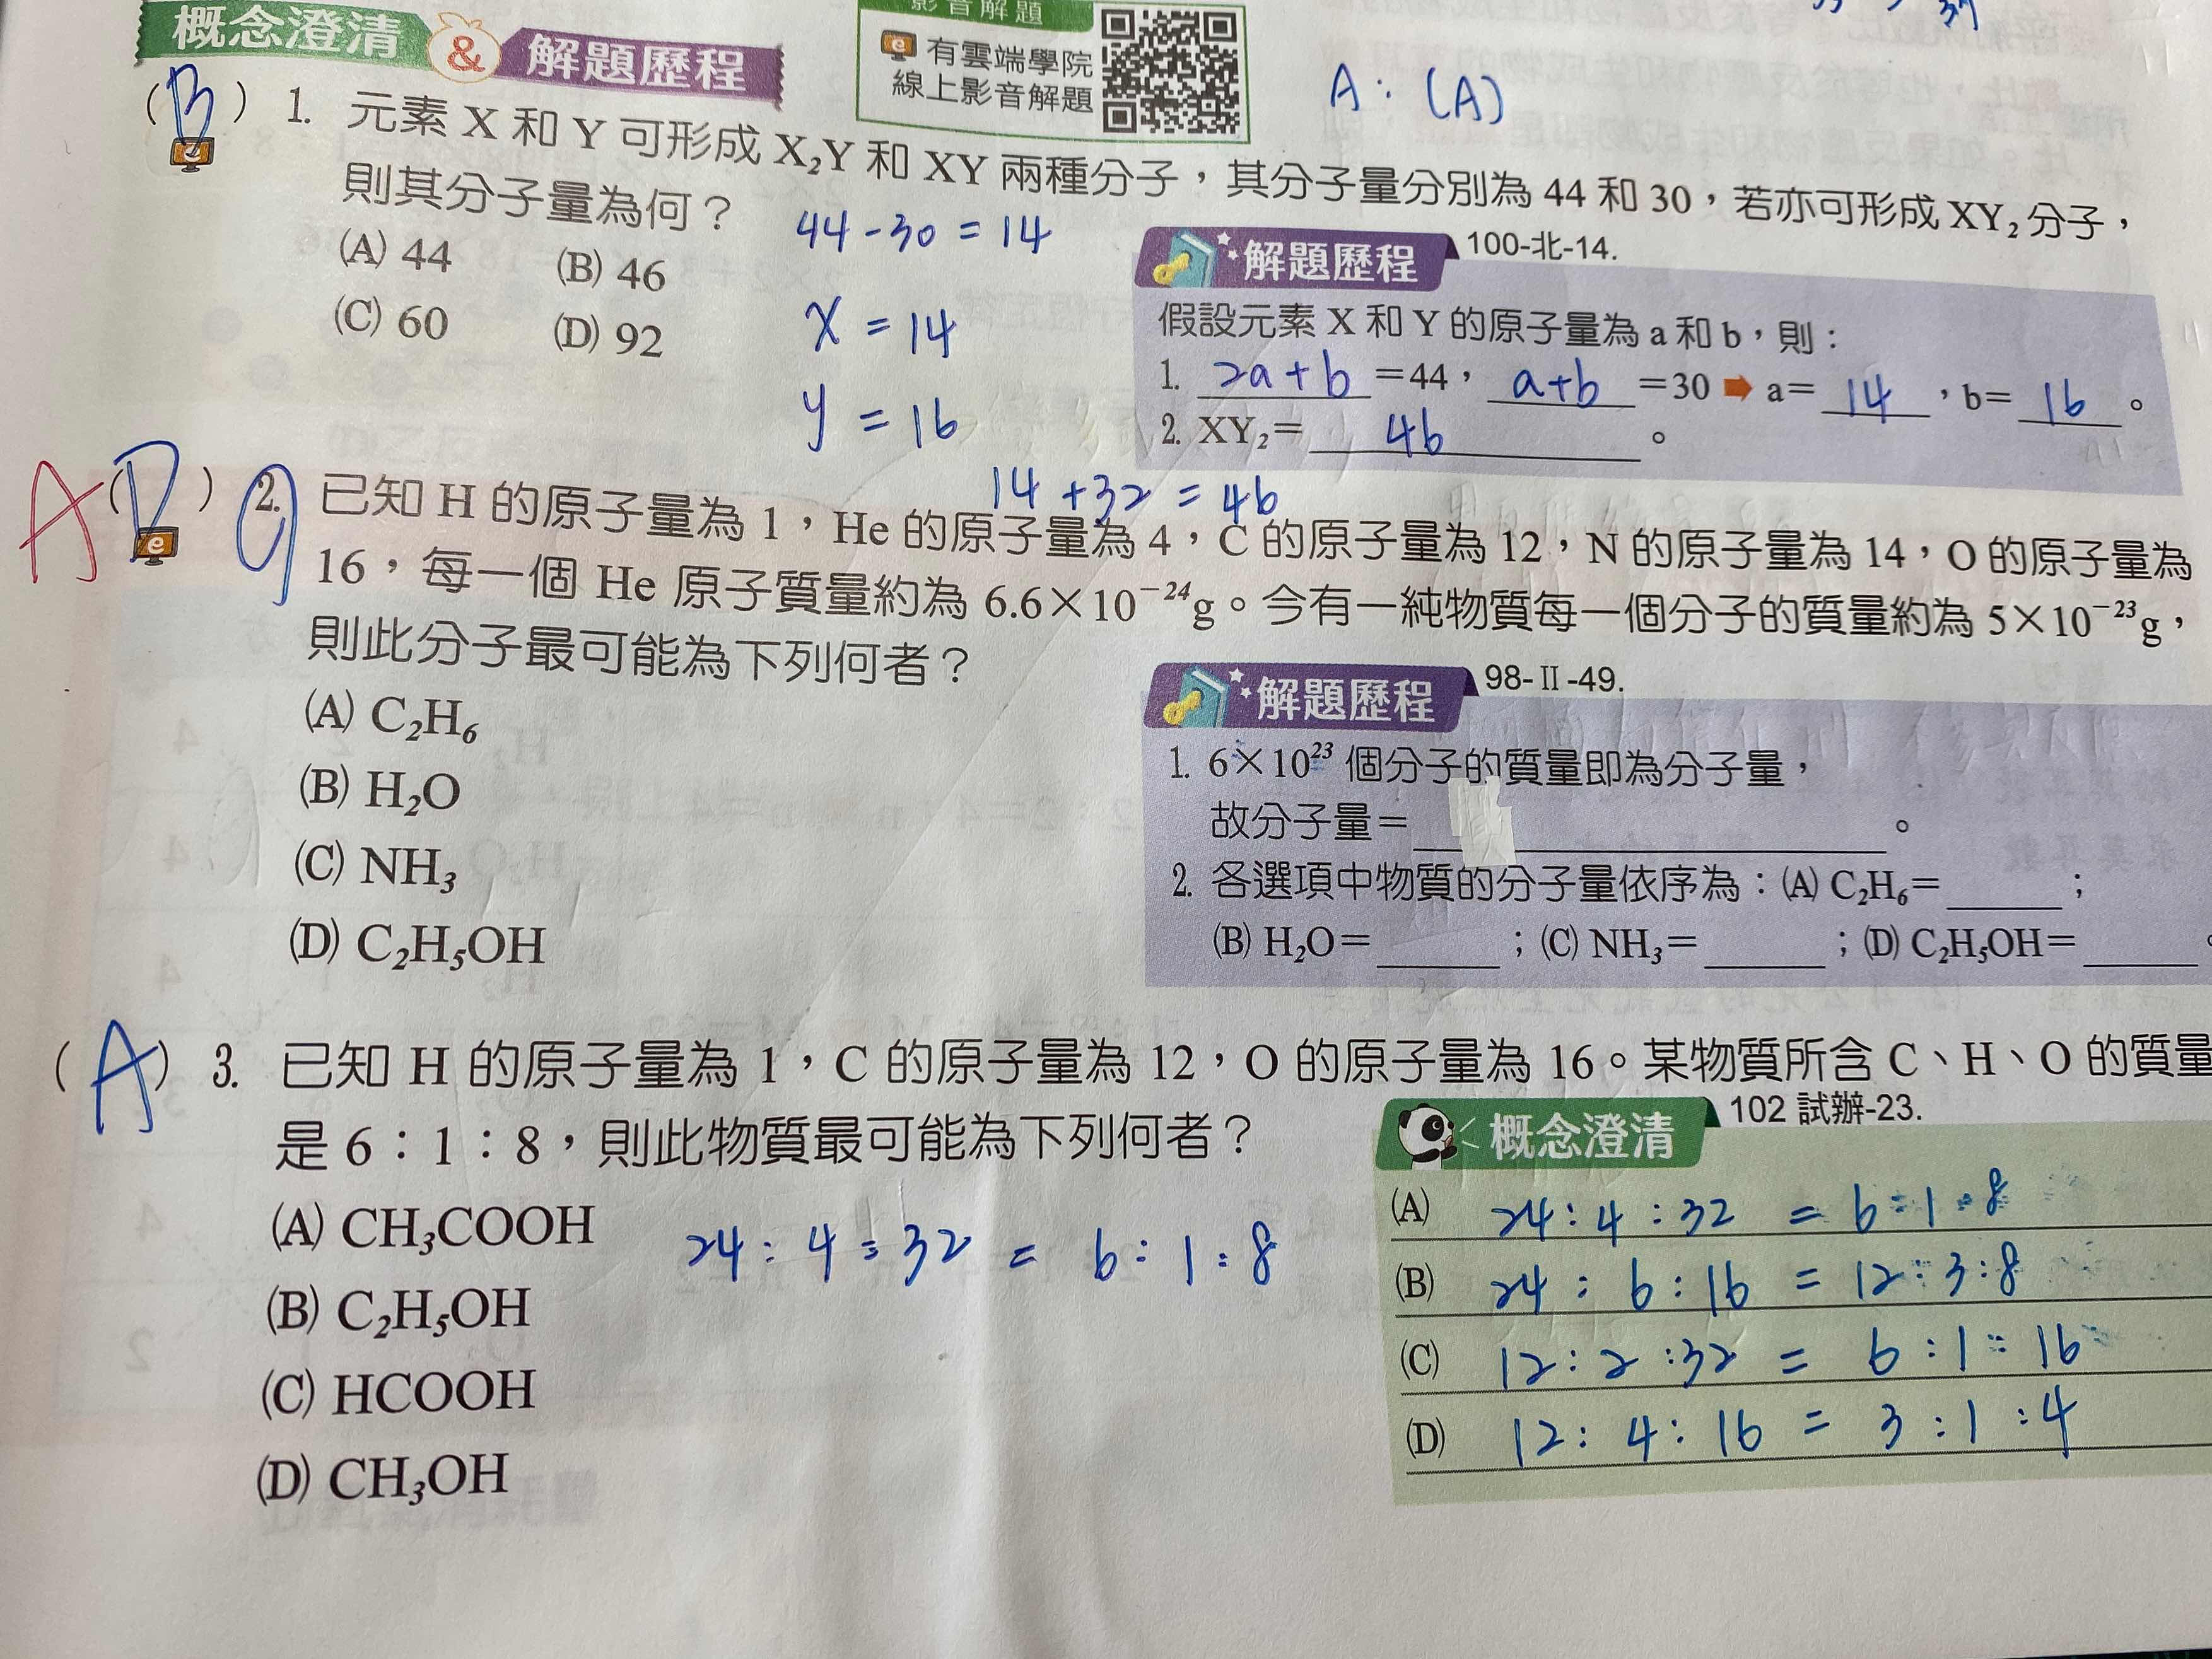 影音解題
概念澄清 & 解題歷程
有雲端學院
線上影音解題
A：(A)
(B) 1. 元素 X 和 Y 可形成 X₂Y 和 XY 兩種分子，其分子量分別為 44 和 30，若亦可形成 XY₂ 分子，
則其分子量為何？
44-30 = 14
(A) 44 (B) 46
(C) 60 (D) 92
x = 14
y = 16
14 + 32 = 46
解題歷程 100-北-14.
假設元素 X 和 Y 的原子量為 a 和 b，則：
1. 2a+b =44， a+b =30 ➡ a= 14 ，b= 16 。
2. XY₂= 46 。
A (D) 2. 已知 H 的原子量為 1，He 的原子量為 4，C 的原子量為 12，N 的原子量為 14，O 的原子量為
16，每一個 He 原子質量約為 6.6×10⁻²⁴g。今有一純物質每一個分子的質量約為 5×10⁻²³g，
則此分子最可能為下列何者？
(A) C₂H₆
(B) H₂O
(C) NH₃
(D) C₂H₅OH
解題歷程 98-II-49.
1. 6×10²³ 個分子的質量即為分子量，
故分子量= 。
2. 各選項中物質的分子量依序為：(A) C₂H₆= ；
(B) H₂O= ；(C) NH₃= ；(D) C₂H₅OH=
(A) 3. 已知 H 的原子量為 1，C 的原子量為 12，O 的原子量為 16。某物質所含 C、H、O 的質量
是 6：1：8，則此物質最可能為下列何者？
(A) CH₃COOH
24：4：32 = 6：1：8
(B) C₂H₅OH
(C) HCOOH
(D) CH₃OH
概念澄清 102 試辦-23.
(A) 24：4：32 = 6：1：8
(B) 24：6：16 = 12：3：8
(C) 12：2：32 = 6：1：16
(D) 12：4：16 = 3：1：4